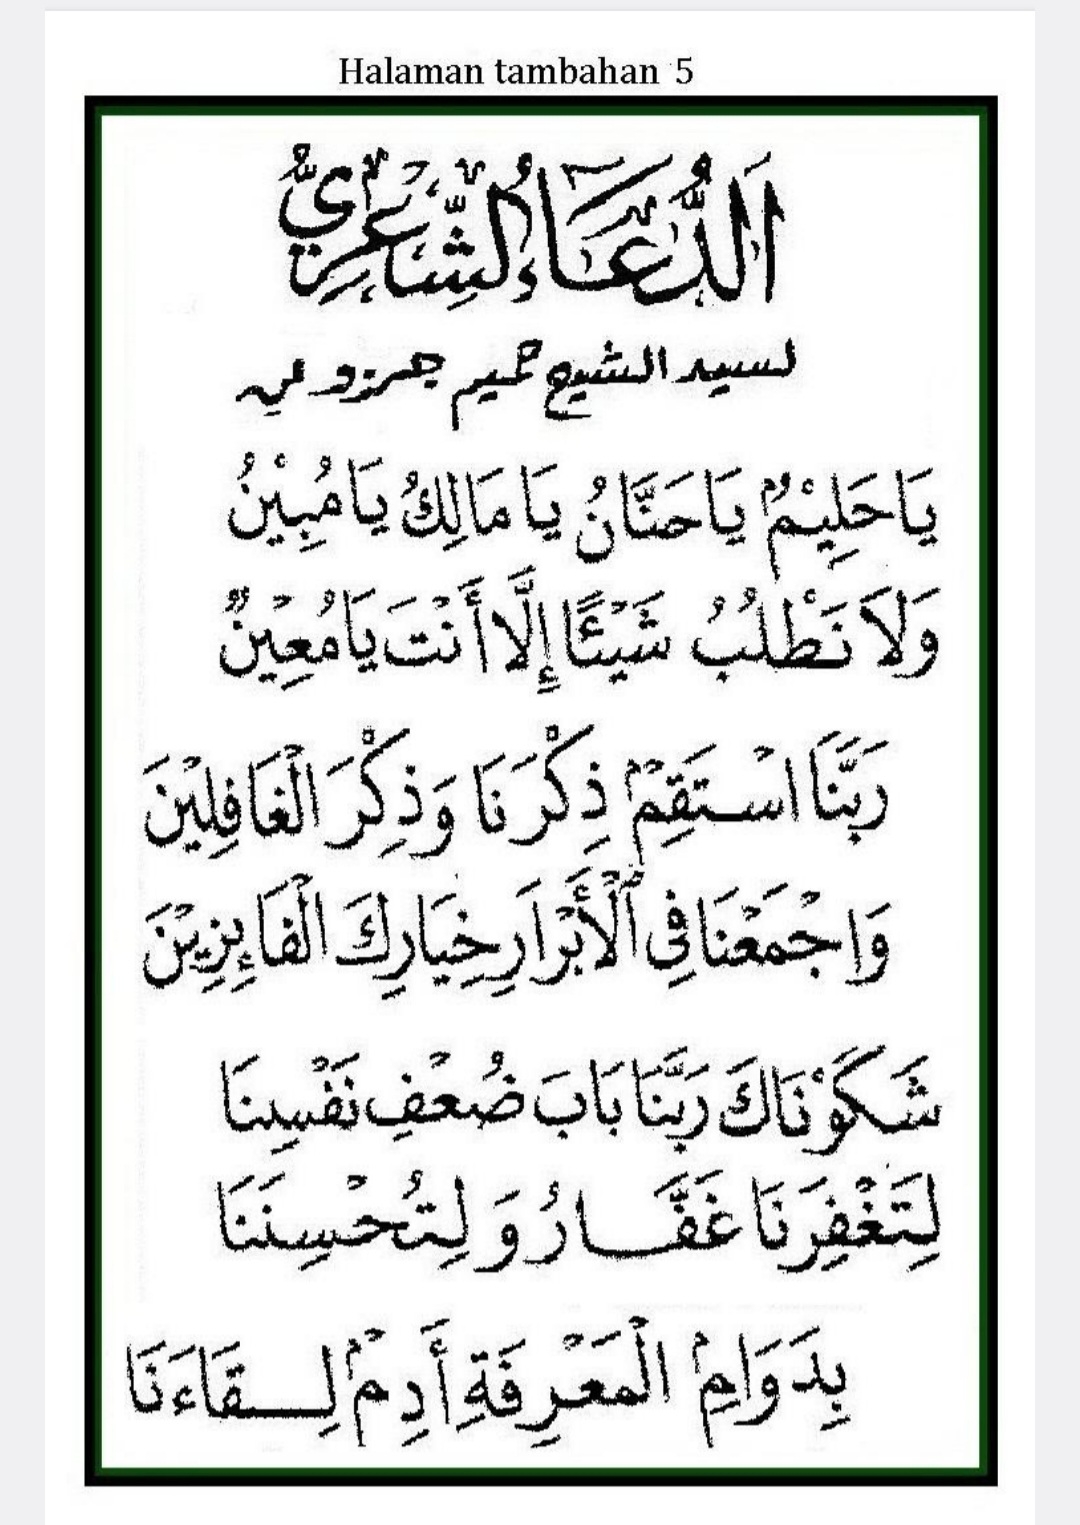 Halaman tambahan 5
اَلدُّعَاءُ الشَّاعِرِيُّ
لسيد الشيخ حميم جهزو
يَاحَلِيْمُ يَاحَنَّانُ يَا مَالِكُ يَامُبِيْنُ
وَلاَ نَطْلُبُ شَيْئًا إِلَّا أَنْتَ يَامُعِيْنٌ
رَبَّنَا اسْتَقِمْ ذِكْرَنَا وَذِكْرَ الْغَافِلِيْنَ
وَاجْمَعْنَا فِى الْأَبْرَارِ خِيَارِكَ الْفَاءِزِيْنَ
شَكَوْنَاكَ رَبَّنَا بَابَ ضُعْفِ نَفْسِنَا
لِتَغْفِرَنَا غَفَّـــارُ وَ لِتُحْسِنَنَا
بِدَوَامِ الْمَعْرِفَةِ أَدِمْ لِـــقَاءَنَا